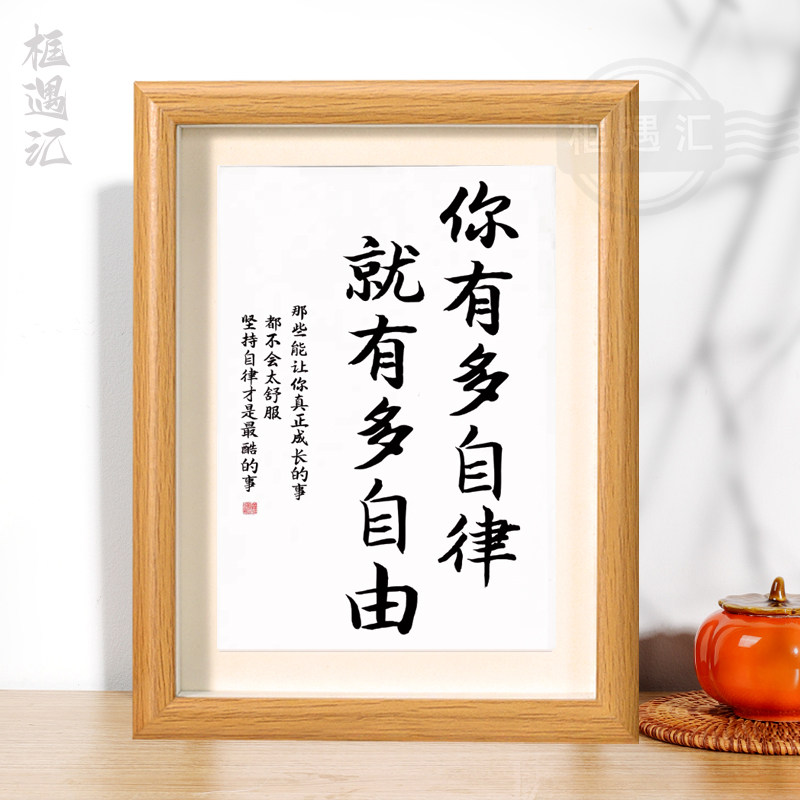 你有多自律
就有多自由
那些能让你真正成长的事
都不会太舒服
坚持自律才是最酷的事
框遇汇
框遇汇